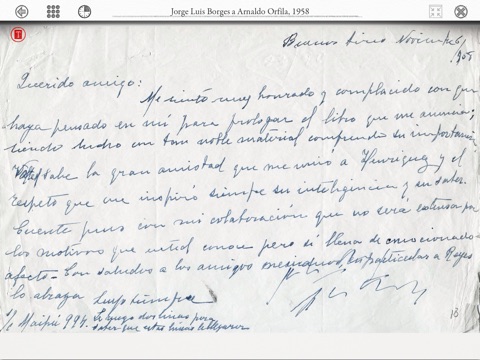 Jorge Luis Borges a Arnaldo Orfila, 1958
Buenos Aires Noviembre 6/
Querido amigo:
Me siento muy honrado y complacido con que
haya pensado en mí para prologar el libro que me anuncia;
siendo con tan noble material comprendo su importancia
Usted sabe la gran amistad que me unió a Henríquez y el
respeto que me inspiró siempre su inteligencia y su saber.
Cuente pues con mi colaboración que no será extensa por
los motivos que usted conoce pero sí llena de emocionado
afecto - Con saludos a los amigos mexicanos en particular a Reyes
lo abraza
s/c Maipú 994. Le ruego dos líneas para
saber que estas líneas le llegaron